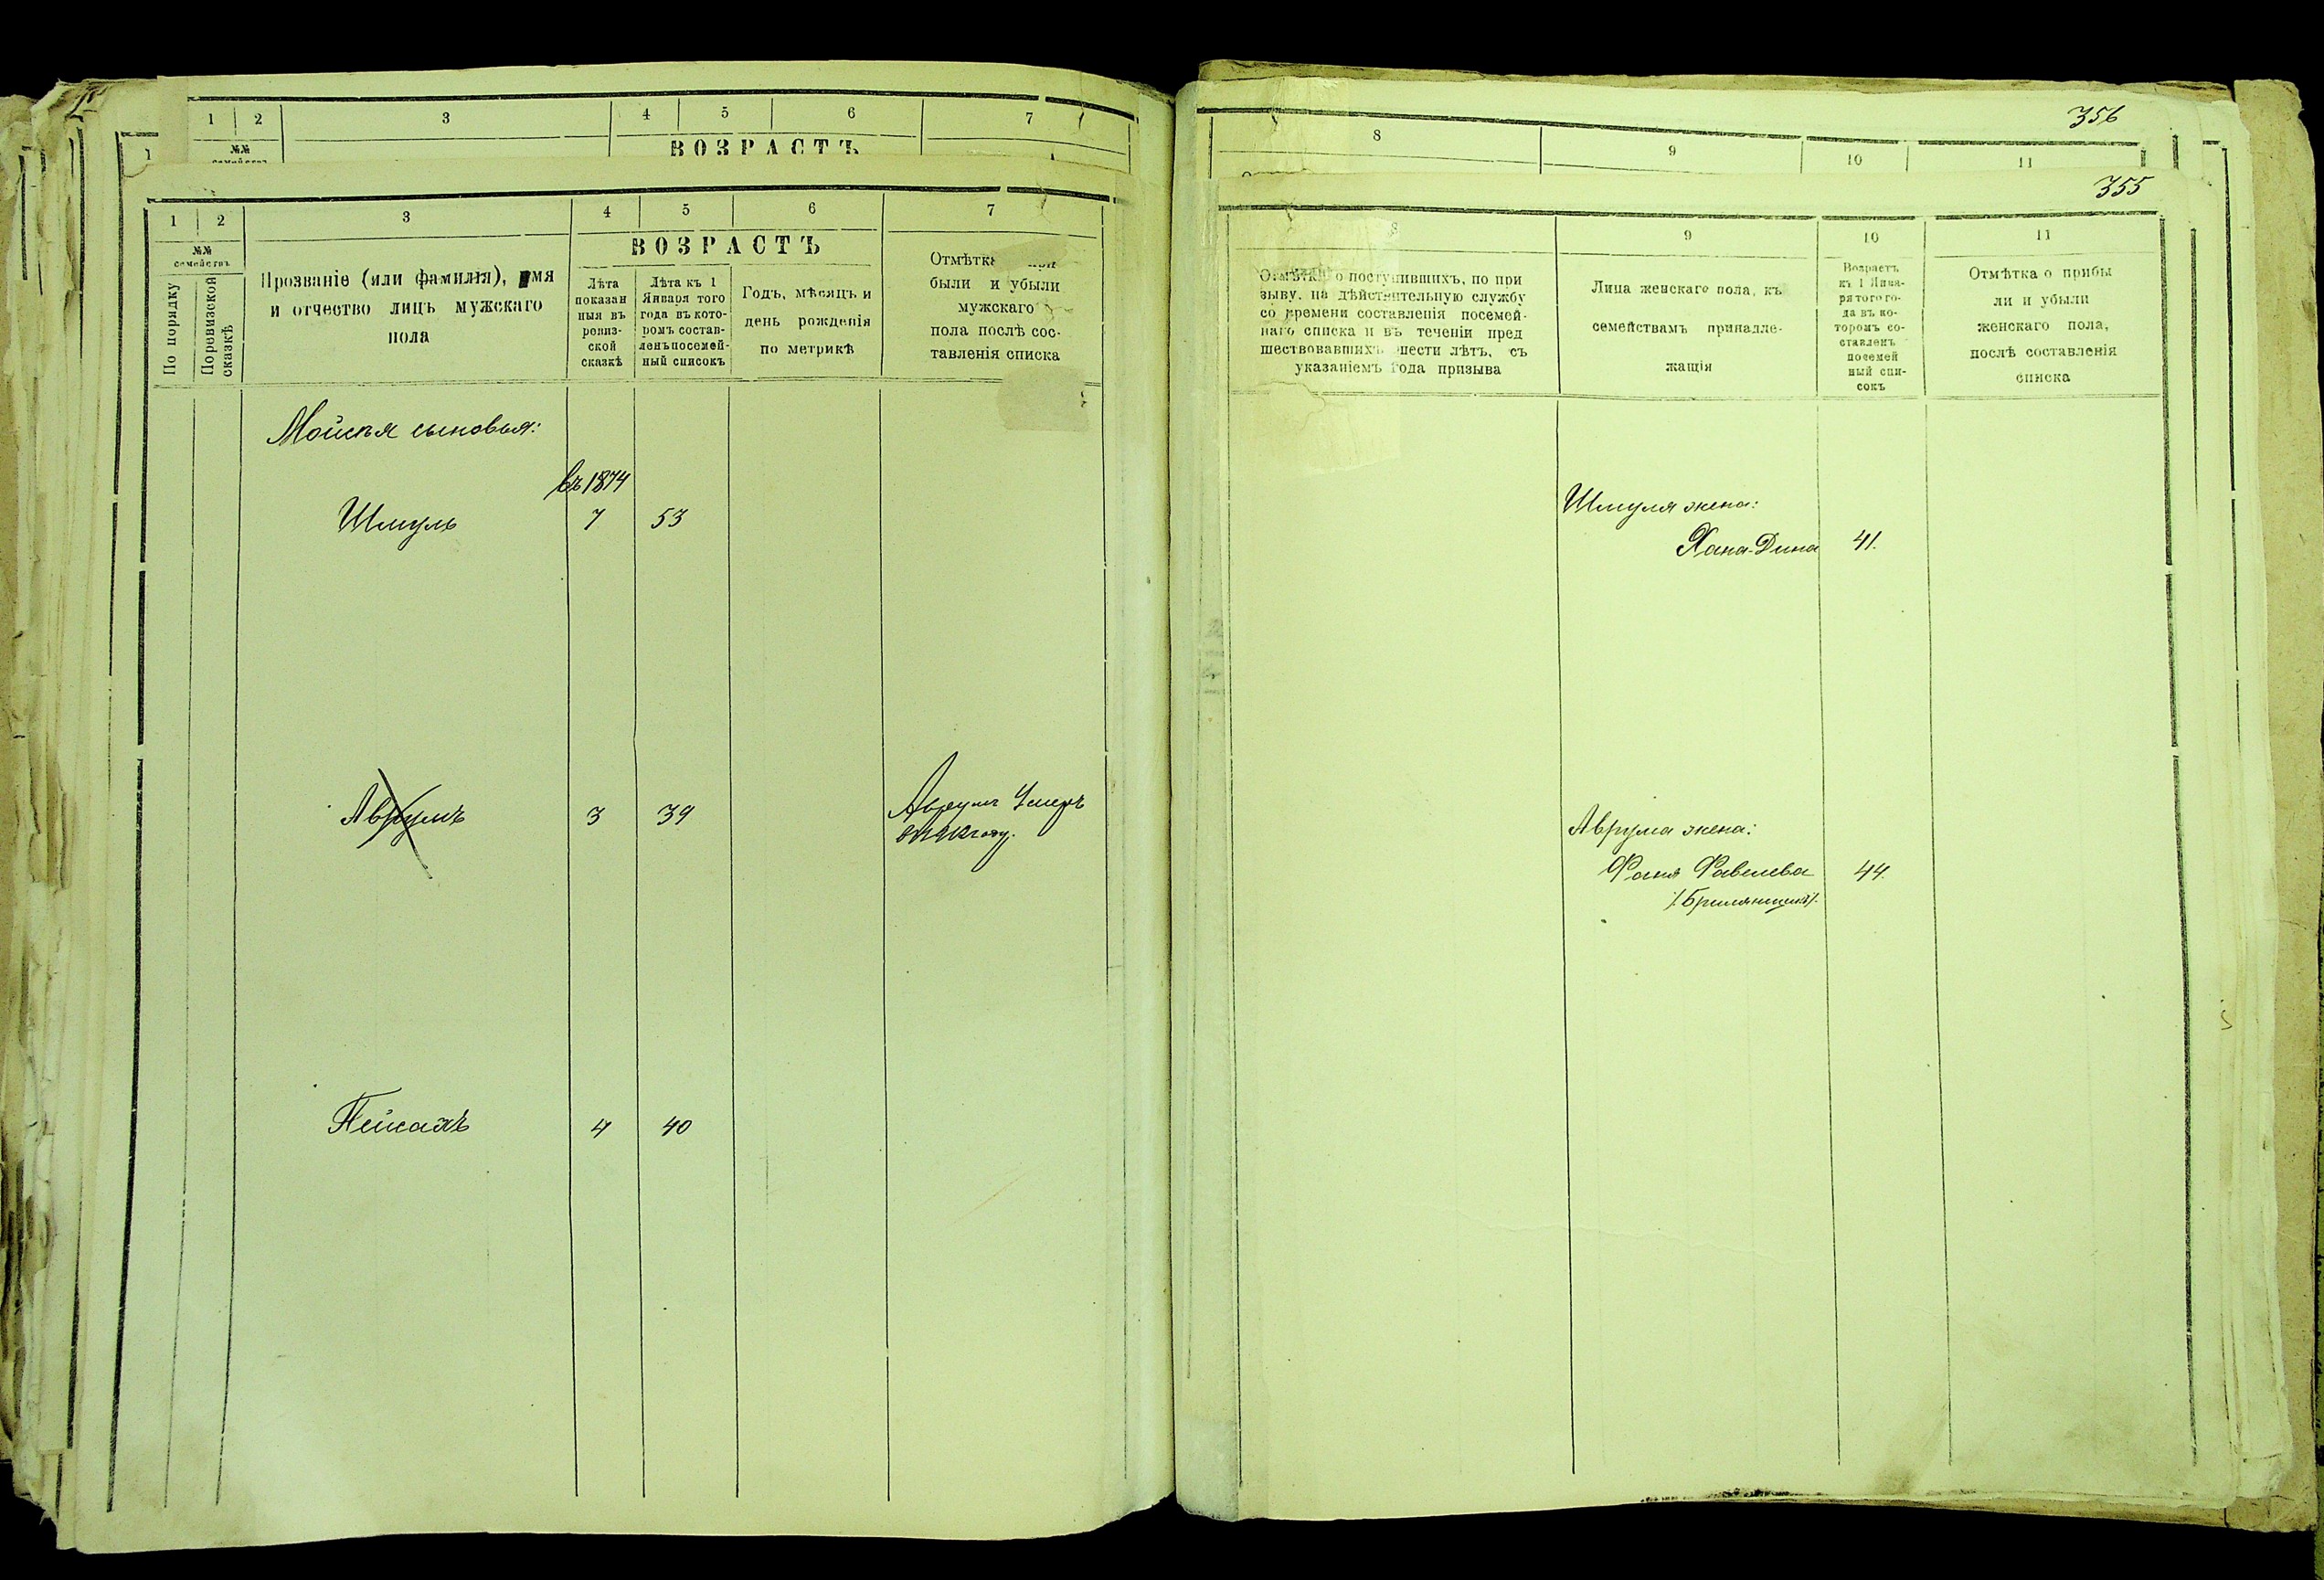 1 2 3 4 5 6 7
№№
ВОЗРАСТЪ
1
1 2 3 4 5 6 7
№№
семействъ
По порядку
По ревизской
сказкѣ
Прозваніе (или фамилія), имя
и отчество лицъ мужскаго
пола
ВОЗРАСТЪ
Лѣта
показан
ныя въ
ревиз-
ской
сказкѣ
Лѣта къ 1
Января того
года въ кото-
ромъ состав-
ленъ посемей-
ный списокъ
Годъ, мѣсяцъ и
день рожденія
по метрикѣ
Отмѣтка при
были и убыли
мужскаго
пола послѣ сос-
тавленія списка
Мойсѣя сыновья:
въ 1874
Шмуль 7 53
Аврумъ 3 39
Аврумъ Умеръ
году.
Пейсахъ 4 40
356
8 9 10 11
355
8 9 10 11
Отмѣтка о поступившихъ, по при
зыву, на дѣйствительную службу
со времени составленія посемей-
наго списка и въ теченіи пред
шествовавшихъ шести лѣтъ, съ
указаніемъ года призыва
Лица женскаго пола, къ
семействамъ принадле-
жащія
Возрастъ
къ 1 Янва-
ря того го-
да въ ко-
торомъ со-
ставленъ
посемей
ный спи-
сокъ
Отмѣтка о прибы
ли и убыли
женскаго пола,
послѣ составленія
списка
Шмуля жена:
Хана-Дина 41.
Аврума жена:
Фаня 44.